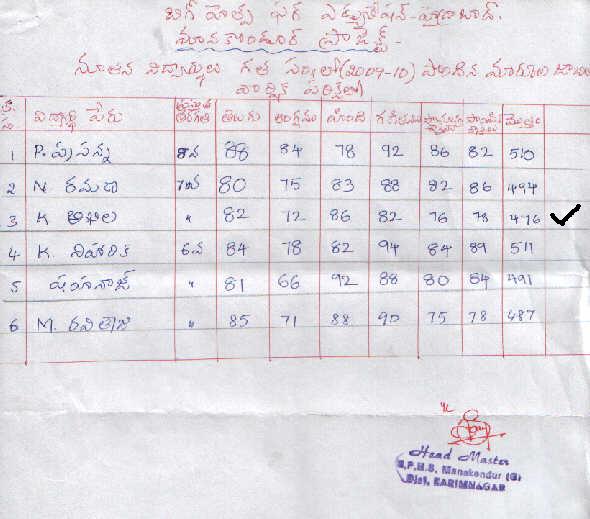 బిగ్ హెల్ప్ ఫర్ ఎడ్యుకేషన్-హైదరాబాద్.
మానకొండూర్ ప్రాజెక్ట్ -
నూతన విద్యార్థులు గత సం॥లో (2009-10) పొందిన మార్కుల
వార్షిక పరీక్షలో)
విద్యార్థి పేరు తరగతి తెలుగు ఆంగ్లము హింది గణితము మొత్తం
1 P. ప్రసన్న 8వ 88 84 78 92 86 82 510
2 N. రమాదే 7వ 80 75 83 88 82 86 494
3 K అఖిల " 82 72 86 82 76 78 476 ✓
4 K. నిహారిక 6వ 84 78 82 94 84 89 511
5 షహనాజ్ " 81 66 92 88 80 84 491
6 M. రవితేజ " 85 71 88 90 75 78 487
Head Master
Z.P.H.S. Manakondur (G)
Dist. KARIMNAGAR